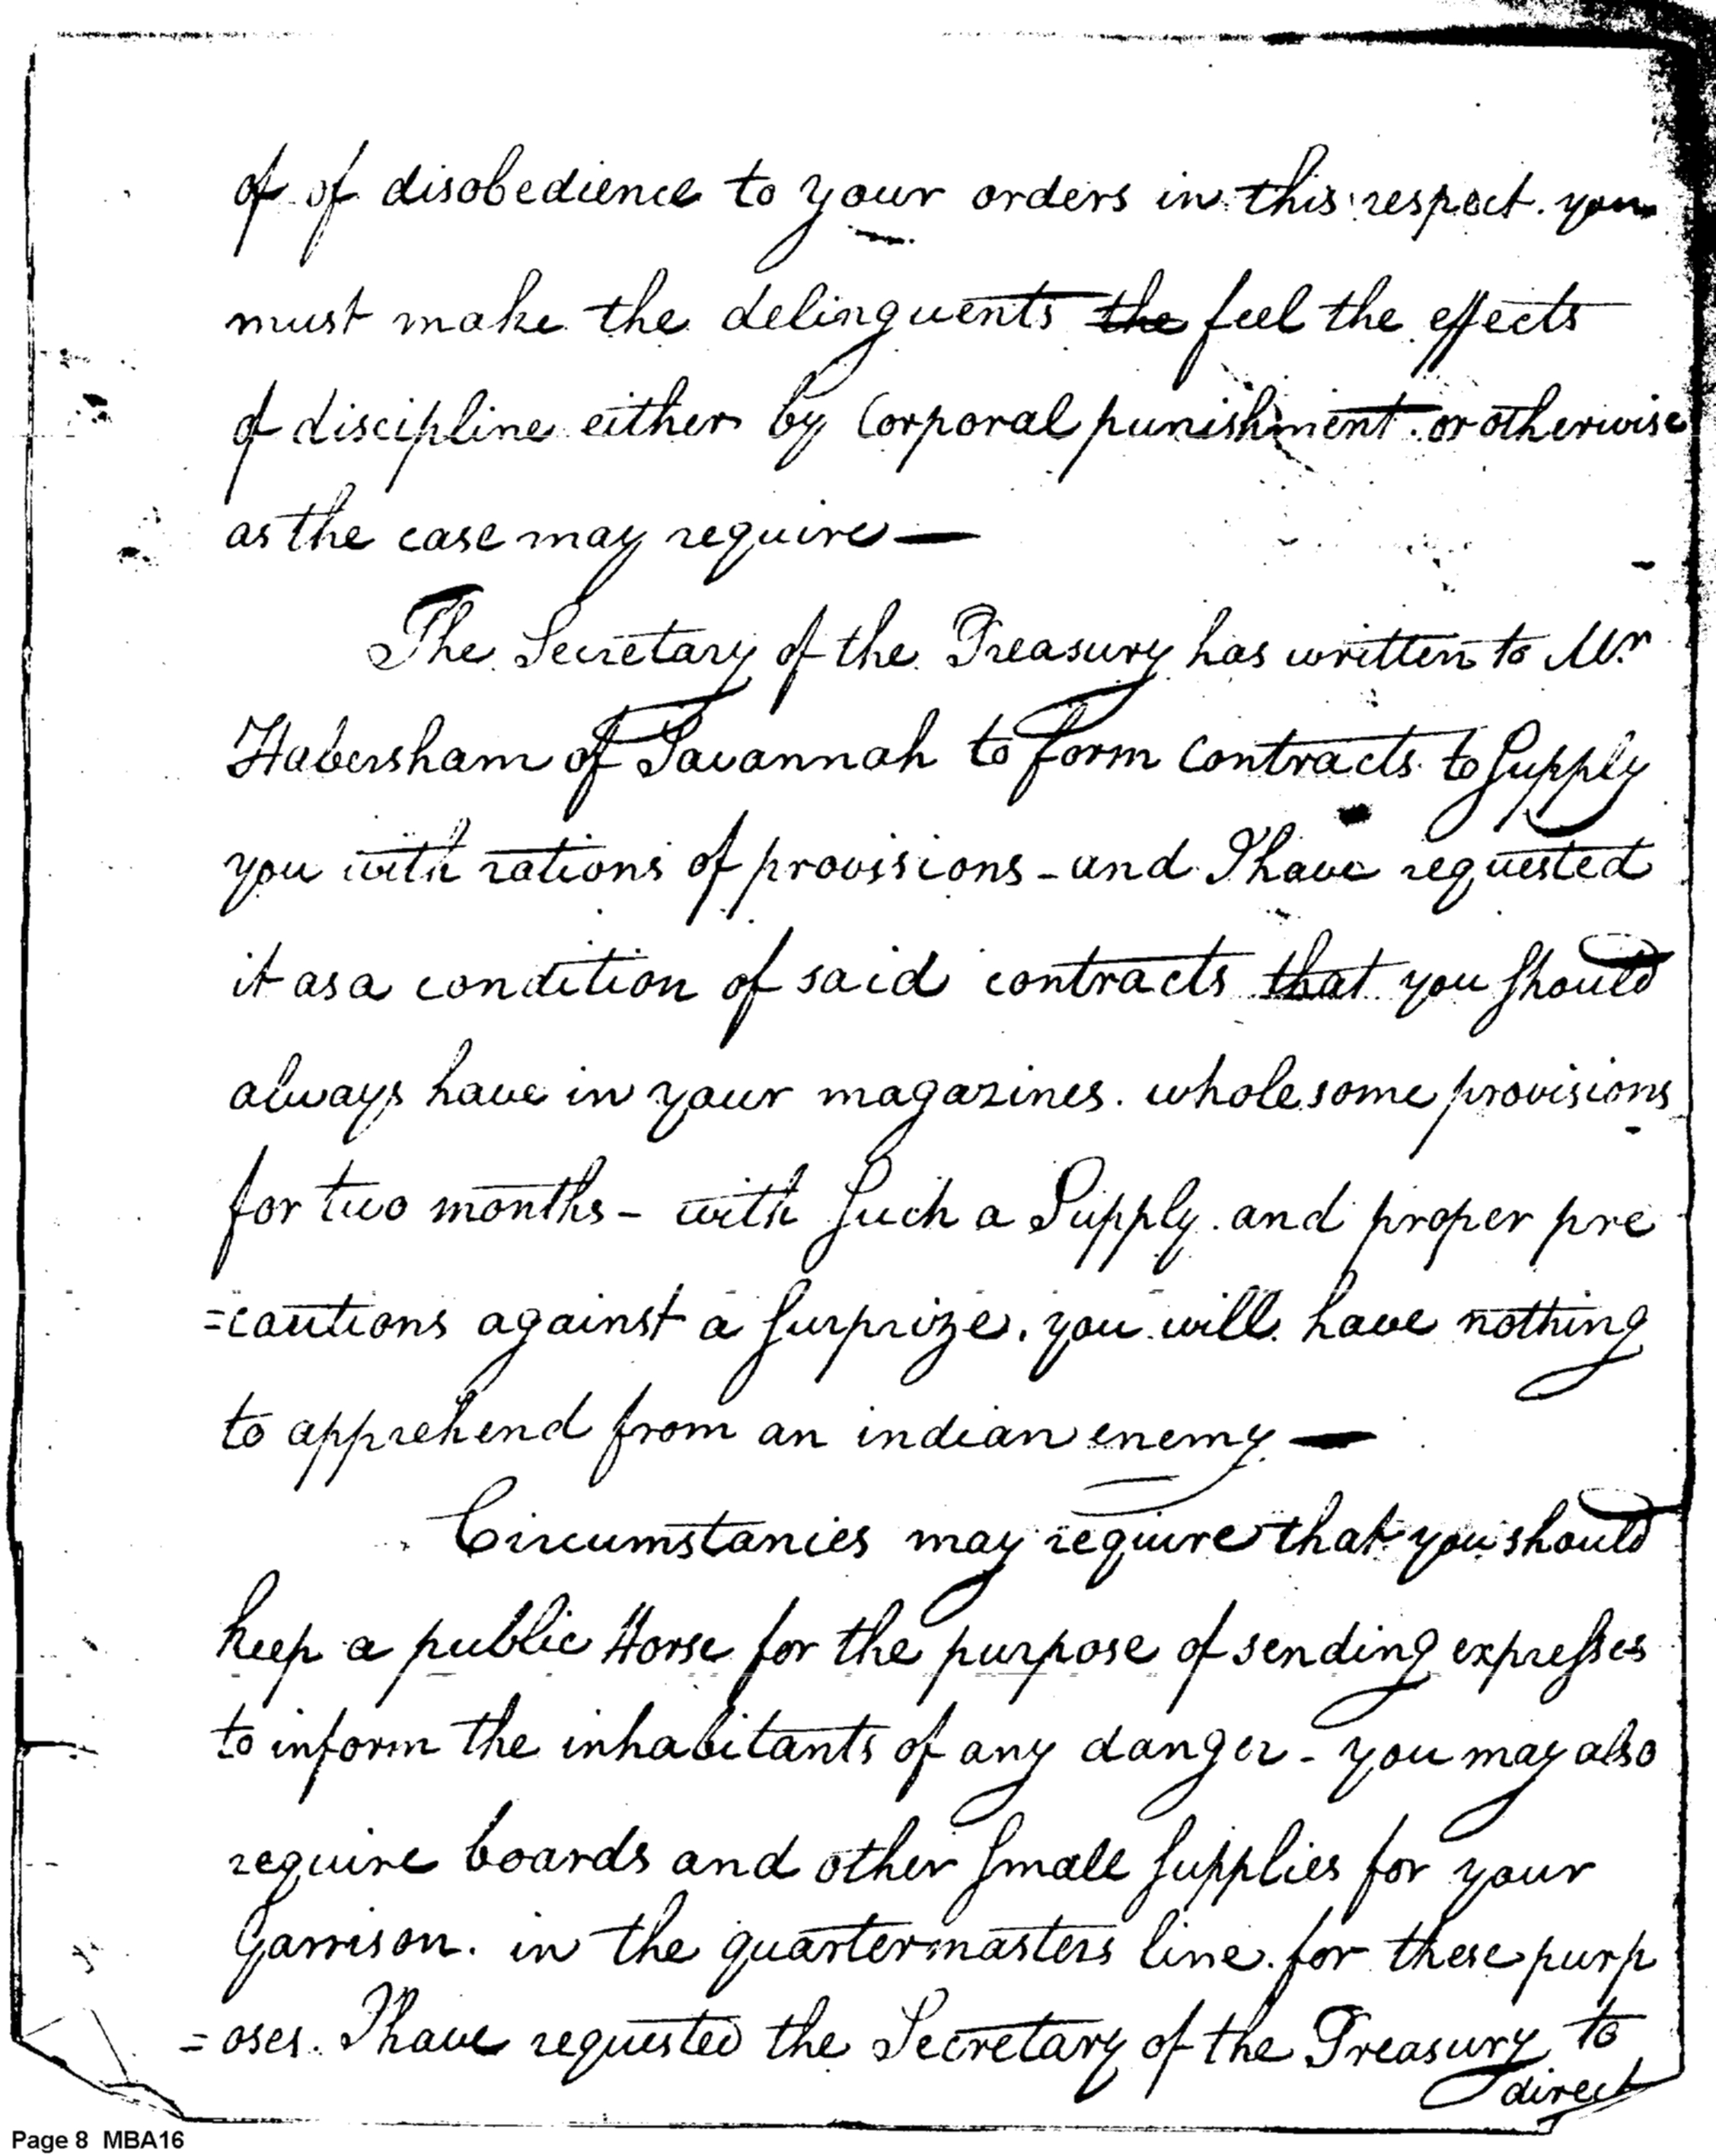 of of disobedience to your orders in this respect. you
must make the delinquents the feel the effects
of discipline either by Corporal punishment or otherwise
as the case may require—
The Secretary of the Treasury has written to Mr
Habersham of Savannah to form contracts to Supply
you with rations of provisions - and I have requested
it as a condition of said contracts that you Should
always have in your magazines. wholesome provisions
for two months - with Such a Supply. and proper pre
=cautions against a Surprize. you will have nothing
to apprehend from an indian enemy —
Circumstances may require that you should
keep a public Horse for the purpose of sending expresses
to inform the inhabitants of any danger - you may also
require boards and other Small Supplies for your
Garrison. in the quartermasters line. for these purp
=oses. I have requested the Secretary of the Treasury to
direct
Page 8 MBA16